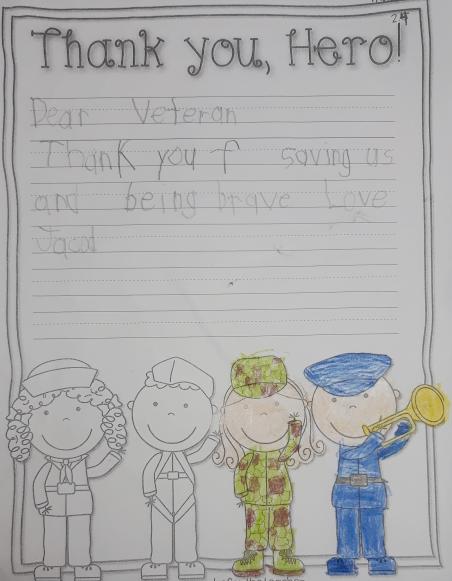 24
Thank you, Hero!
Dear Veteran
Thank you f saving us
and being brave Love